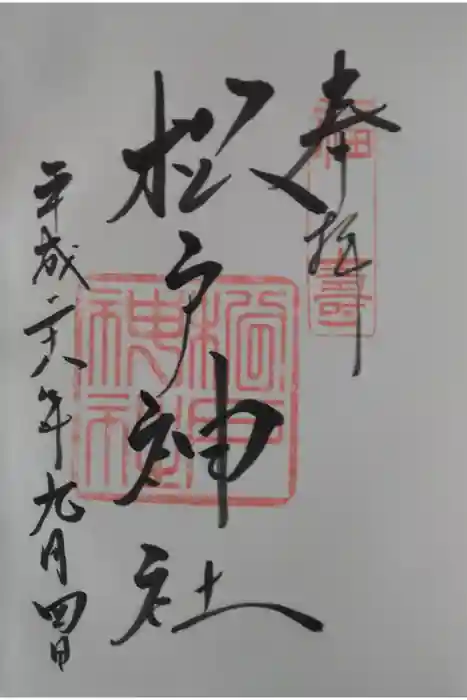 奉拝
福寿
松戸神社
平成二十八年九月四日